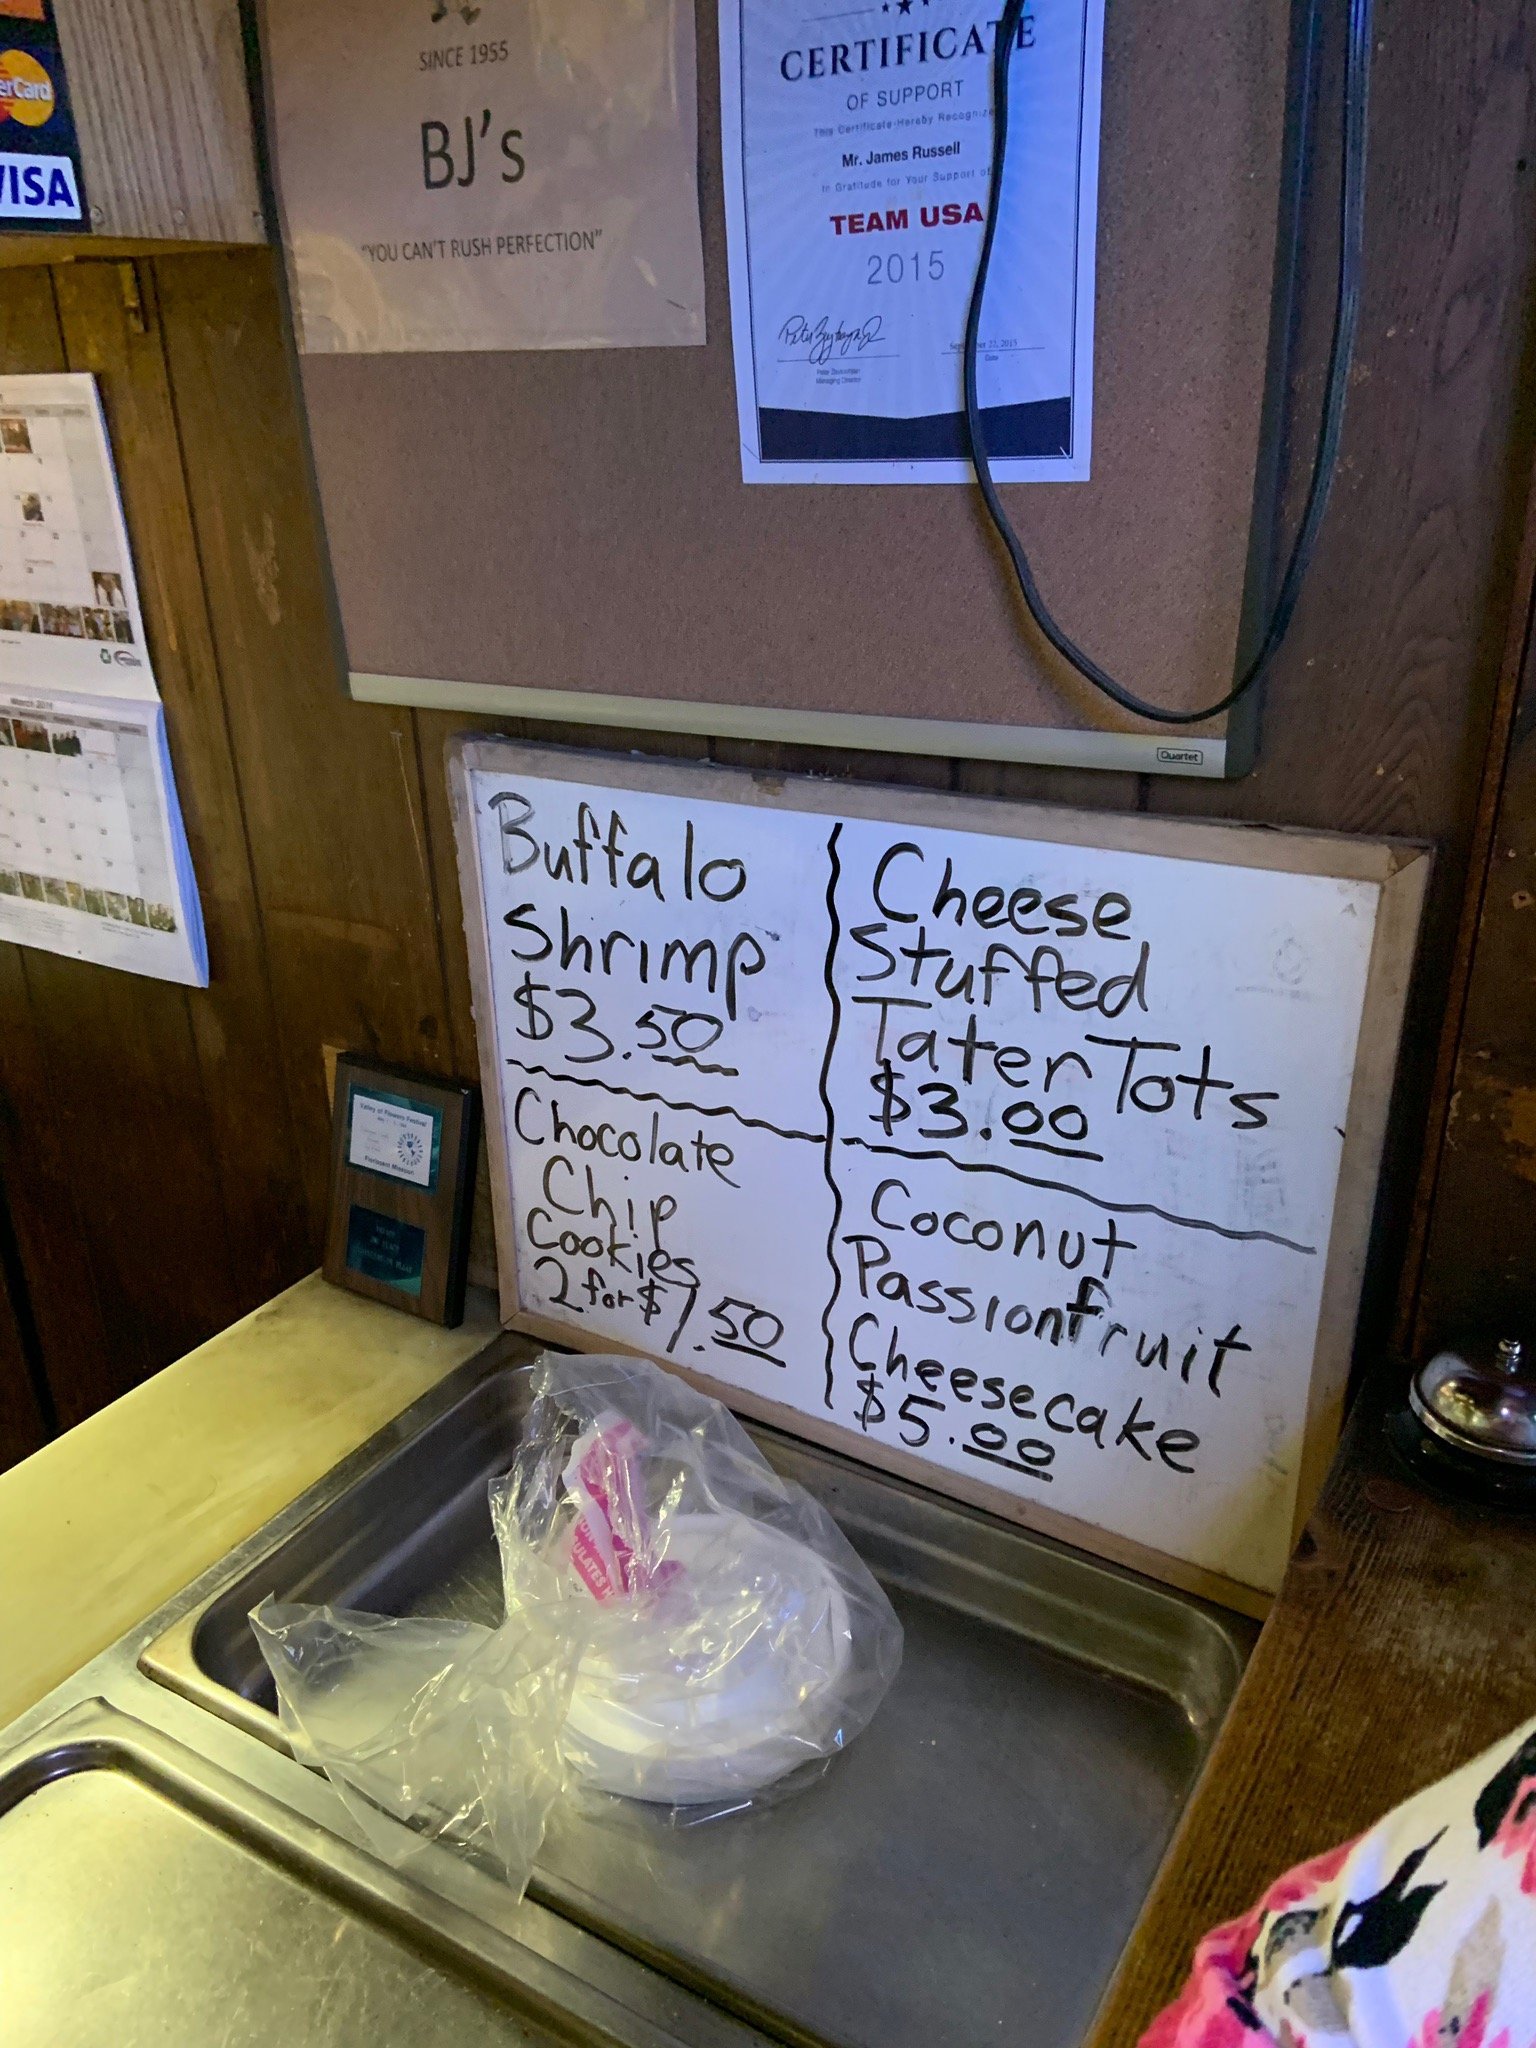 erCard
VISA
SINCE 1955
BJ's
"YOU CAN'T RUSH PERFECTION"
CERTIFICATE
OF SUPPORT
This Certificate Hereby Recognize
Mr. James Russell
In Gratitude for Your Support of
TEAM USA
2015
22, 2015
Date
Managing Director
Quartet
Buffalo
Shrimp
$3.50
Chocolate
Chip
Cookies
2 for $1.50
Cheese
Stuffed
Tater Tots
$3.00
Coconut
Passionfruit
Cheesecake
$5.00
Valley of Flowers Festival
Florissant Missouri
March